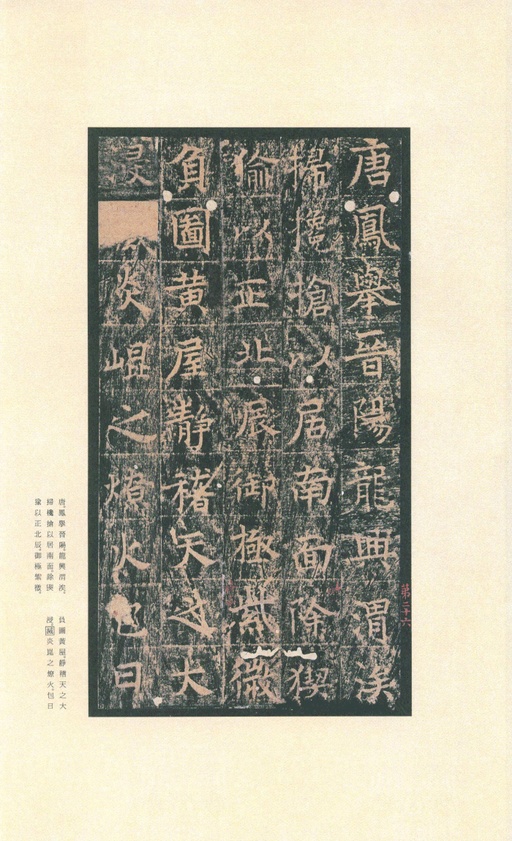 唐鳳舉晉陽龍興渭涘
掃攙搶以居南面除猰
㺄以正北辰御極紫微
負圖黃屋靜稽天之大
浸炎崐之燎火包日
第二十六
唐。鳳舉晉陽。龍興渭涘。
掃欃搶以居南面。除猰
㺄以正北辰。御極紫微。
負圖黃屋。靜稽天之大
浸。滅炎崑之燎火。包日